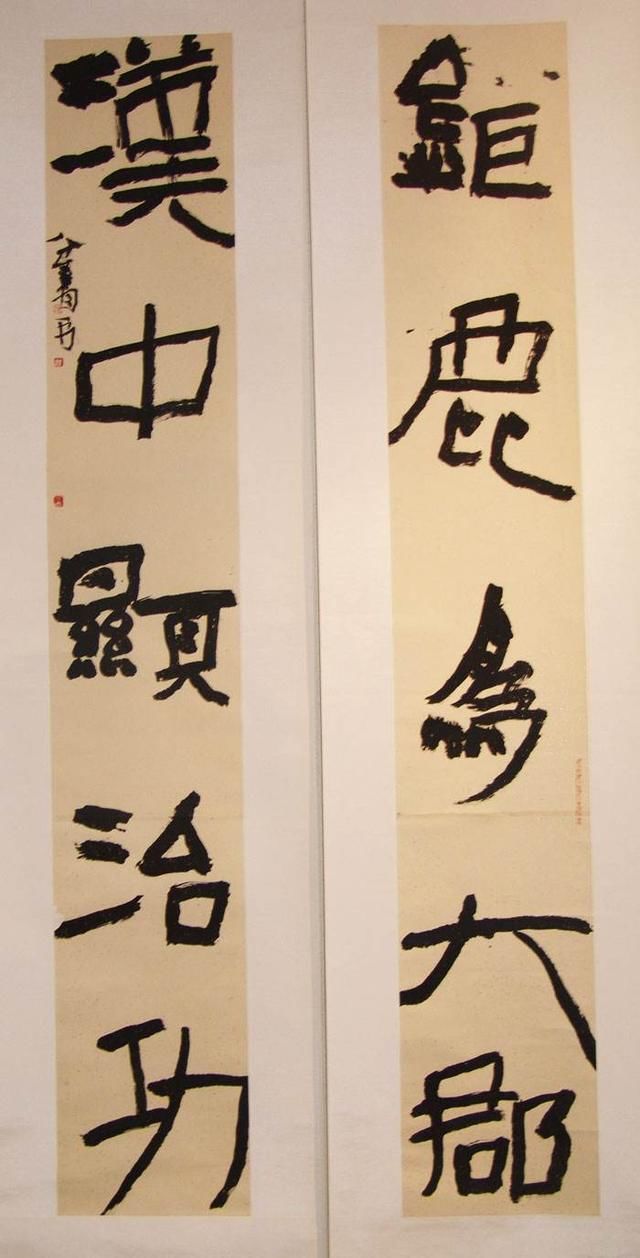 鉅鹿為大郡
漢中顯治功